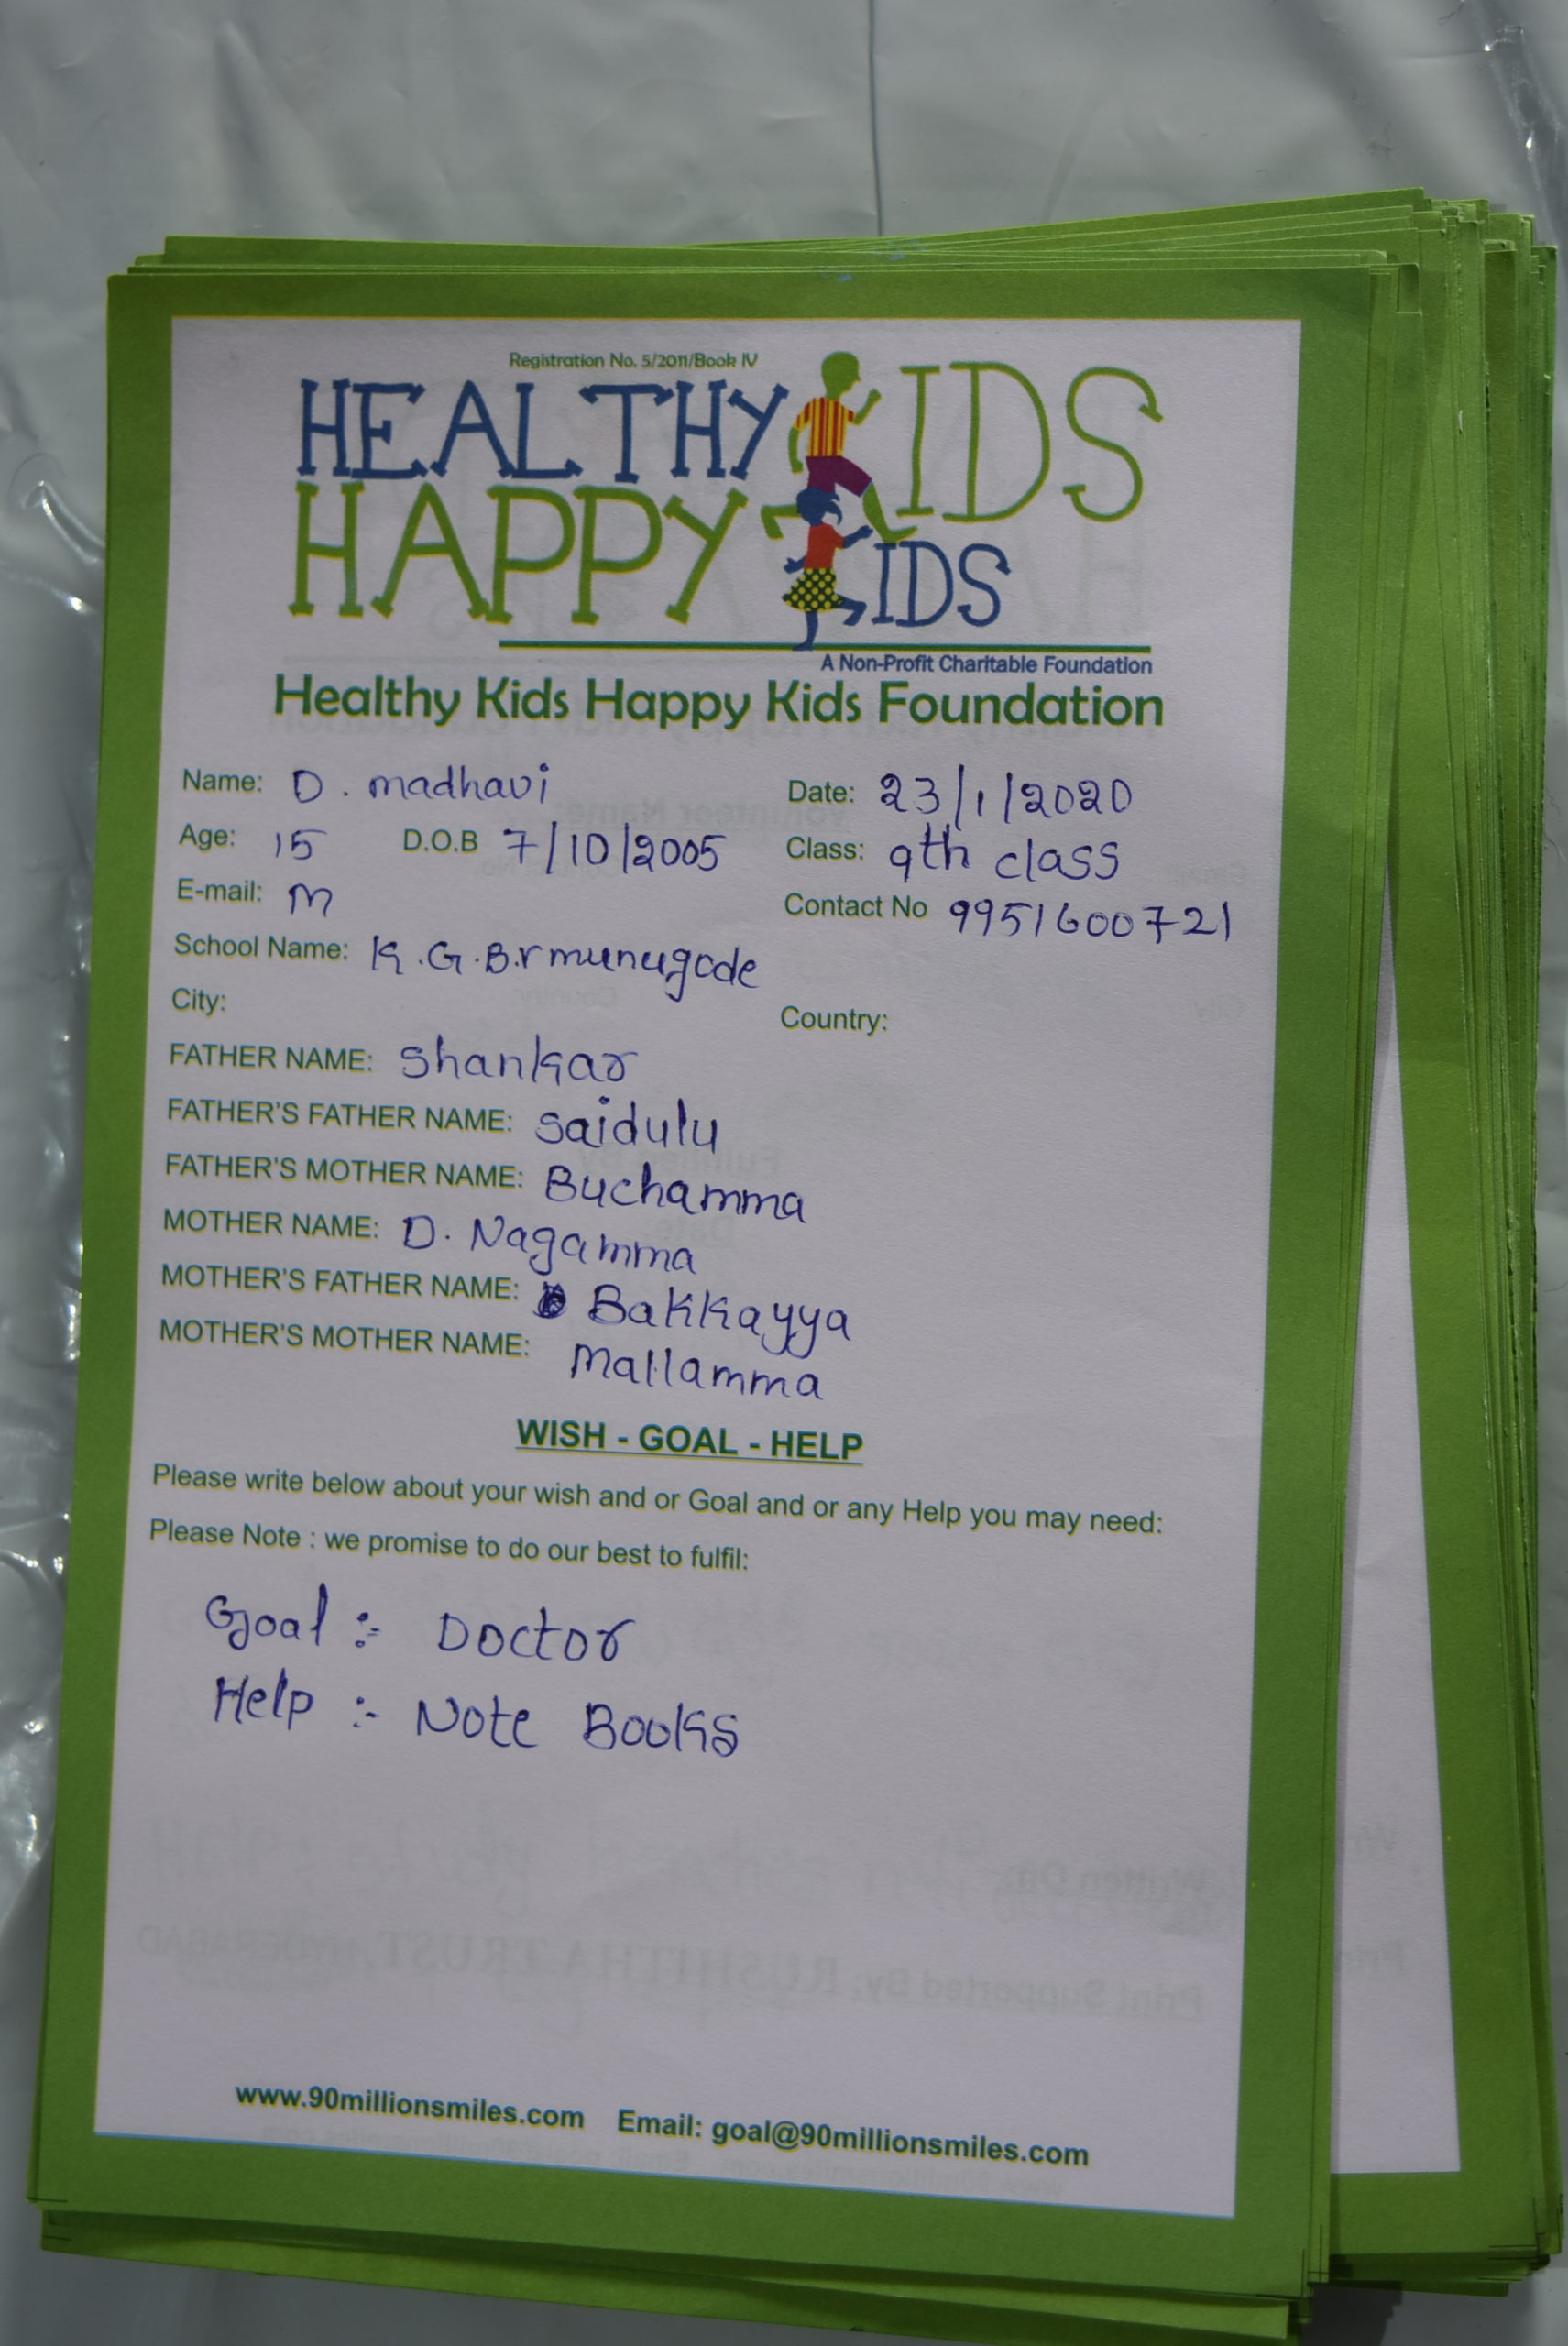 Registration No. 5/2011/Book IV
HEALTHY KIDS
HAPPY KIDS
A Non-Profit Charitable Foundation
Healthy Kids Happy Kids Foundation
Name: D. madhavi Date: 23/1/2020
Age: 15 D.O.B 7/10/2005 Class: 9th class
E-mail: m Contact No 9951600721
School Name: K.G.B.V munugode
City: Country:
FATHER NAME: Shankar
FATHER'S FATHER NAME: Saidulu
FATHER'S MOTHER NAME: Buchamma
MOTHER NAME: D. Nagamma
MOTHER'S FATHER NAME: Bakkayya
MOTHER'S MOTHER NAME: Mallamma
WISH - GOAL - HELP
Please write below about your wish and or Goal and or any Help you may need:
Please Note : we promise to do our best to fulfil:
Goal :- Doctor
Help :- Note Books
www.90millionsmiles.com Email: goal@90millionsmiles.com